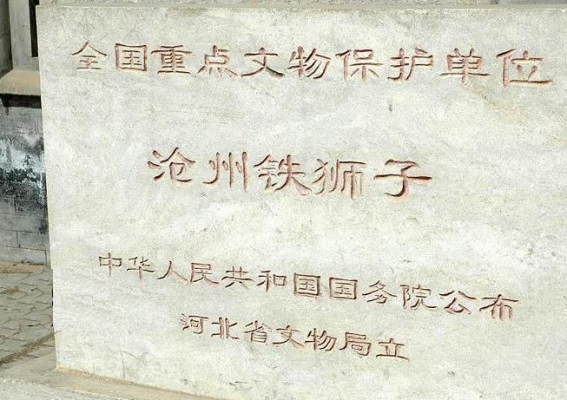 全国重点文物保护单位
沧州铁狮子
中华人民共和国国务院公布
河北省文物局立